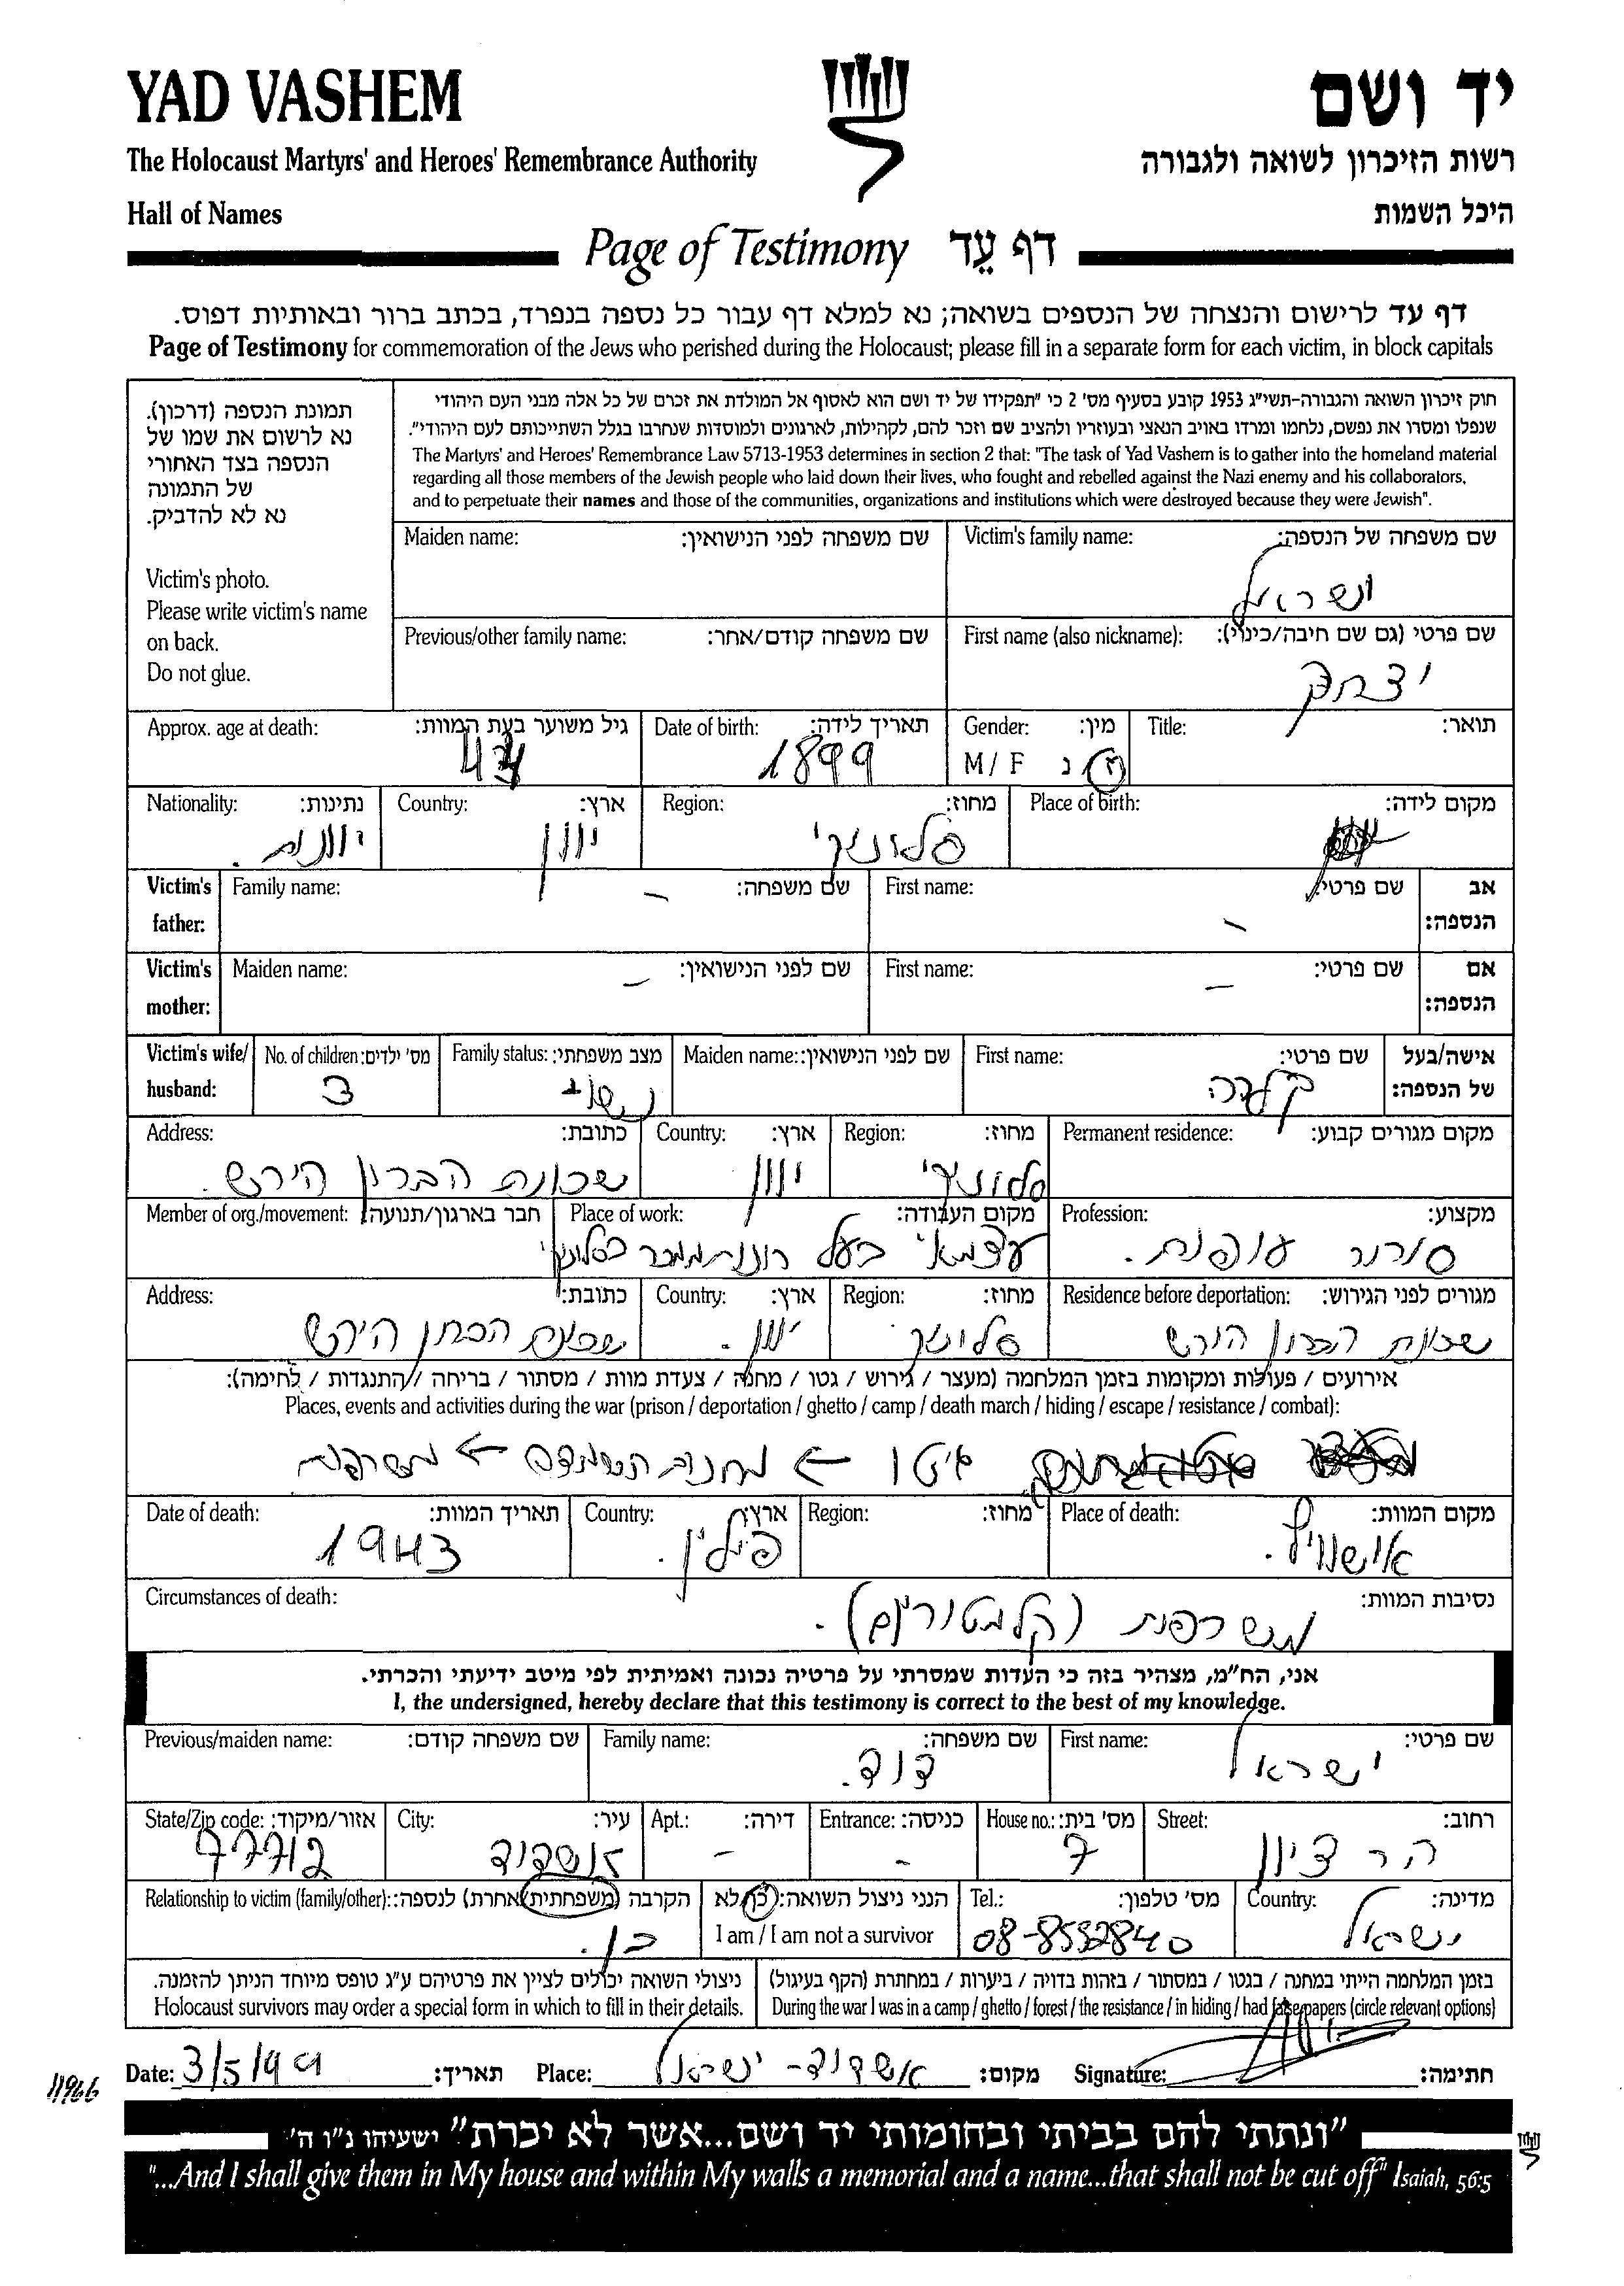 YAD VASHEM יד ושם
The Holocaust Martyrs' and Heroes' Remembrance Authority רשות הזיכרון לשואה ולגבורה
Hall of Names היכל השמות
Page of Testimony דף עד
דף עד לרישום והנצחה של הנספים בשואה; נא למלא דף עבור כל נספה בנפרד, בכתב ברור ובאותיות דפוס.
Page of Testimony for commemoration of the Jews who perished during the Holocaust; please fill in a separate form for each victim, in block capitals
תמונת הנספה (דרכון).
נא לרשום את שמו של
הנספה בצד האחורי
של התמונה
נא לא להדביק.
Victim's photo.
Please write victim's name
on back.
Do not glue.
חוק זיכרון השואה והגבורה-תשי"ג 1953 קובע בסעיף מס' 2 כי "תפקידו של יד ושם הוא לאסוף אל המולדת את זכרם של כל אלה מבני העם היהודי
שנפלו ומסרו את נפשם, נלחמו ומרדו באויב הנאצי ובעוזריו ולהציב שם וזכר להם, לקהילות, לארגונים ולמוסדות שנחרבו בגלל השתייכותם לעם היהודי".
The Martyrs' and Heroes' Remembrance Law 5713-1953 determines in section 2 that: "The task of Yad Vashem is to gather into the homeland material
regarding all those members of the Jewish people who laid down their lives, who fought and rebelled against the Nazi enemy and his collaborators,
and to perpetuate their names and those of the communities, organizations and institutions which were destroyed because they were Jewish".
Maiden name: שם משפחה לפני הנישואין: Victim's family name: שם משפחה של הנספה:
ישראל
Previous/other family name: שם משפחה קודם/אחר: First name (also nickname): שם פרטי (גם שם חיבה/כינוי):
יצחק
Approx. age at death: גיל משוער בעת המוות: Date of birth: תאריך לידה: Gender: מין: Title: תואר:
44 1899 M / F ז נ
Nationality: נתינות: Country: ארץ: Region: מחוז: Place of birth: מקום לידה:
יוונית. יוון סלוניקי
Victim's father: Family name: שם משפחה: First name: שם פרטי: אב הנספה:
– –
Victim's mother: Maiden name: שם לפני הנישואין: First name: שם פרטי: אם הנספה:
– –
Victim's wife/husband: No. of children: מס' ילדים: Family status: מצב משפחתי: Maiden name: שם לפני הנישואין: First name: שם פרטי: אישה/בעל של הנספה:
3 נשוי קלרה
Address: כתובת: Country: ארץ: Region: מחוז: Permanent residence: מקום מגורים קבוע:
שכונת הברון הירש. יוון סלוניקי
Member of org./movement: חבר בארגון/תנועה: Place of work: מקום העבודה: Profession: מקצוע:
עצמאי בעל חנות ממכר בסלוניקי סוחר עופות.
Address: כתובת: Country: ארץ: Region: מחוז: Residence before deportation: מגורים לפני הגירוש:
שכונת הברון הירש יוון. סלוניקי שכונת הברון הירש
אירועים / פעולות ומקומות בזמן המלחמה (מעצר / גירוש / גטו / מחנה / צעדת מוות / מסתור / בריחה / התנגדות / לחימה):
Places, events and activities during the war (prison / deportation / ghetto / camp / death march / hiding / escape / resistance / combat):
גיטו ← מחנה השמדה ← משרפות
Date of death: תאריך המוות: Country: ארץ: Region: מחוז: Place of death: מקום המוות:
1943 פולין. אושוויץ.
Circumstances of death: נסיבות המוות:
משרפות (קרמטוריום).
אני, הח"מ, מצהיר בזה כי העדות שמסרתי על פרטיה נכונה ואמיתית לפי מיטב ידיעתי והכרתי.
I, the undersigned, hereby declare that this testimony is correct to the best of my knowledge.
Previous/maiden name: שם משפחה קודם: Family name: שם משפחה: First name: שם פרטי:
דוד. ישראל
State/Zip code: אזור/מיקוד: City: עיר: Apt.: דירה: Entrance: כניסה: House no.: מס' בית: Street: רחוב:
77712 אשדוד – – 7 הר ציון
Relationship to victim (family/other): הקרבה (משפחתית/אחרת) לנספה: הנני ניצול השואה: כן/לא Tel.: מס' טלפון: Country: מדינה:
בן. I am / I am not a survivor 08-8532840 ישראל
ניצולי השואה יכולים לציין את פרטיהם ע"ג טופס מיוחד הניתן להזמנה. בזמן המלחמה הייתי במחנה / בגטו / במסתור / בזהות בדויה / ביערות / במחתרת (הקף בעיגול)
Holocaust survivors may order a special form in which to fill in their details. During the war I was in a camp / ghetto / forest / the resistance / in hiding / had false papers (circle relevant options)
Date: 3/5/99 תאריך: Place: אשדוד - ישראל מקום: Signature: חתימה:
"ונתתי להם בביתי ובחומותי יד ושם...אשר לא יכרת" ישעיהו נ"ו ה'
"...And I shall give them in My house and within My walls a memorial and a name...that shall not be cut off" Isaiah, 56:5